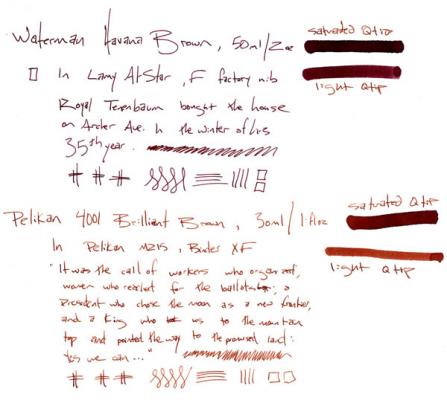 Waterman Havana Brown, 50ml/2oz
saturated Qtip
In Lamy AlStar, F factory nib
light Qtip
Royal Tenenbaum bought the house
on Archer Ave. in the winter of his
35th year.
Pelikan 4001 Brilliant Brown, 30ml/1 floz
saturated Qtip
In Pelikan M215, Binder XF
light Qtip
"It was the call of workers who organized,
women who reached for the ballots; a
President who chose the moon as a new frontier,
and a King who us to the mountain
top and pointed the way to the promised land:
Yes we can..."